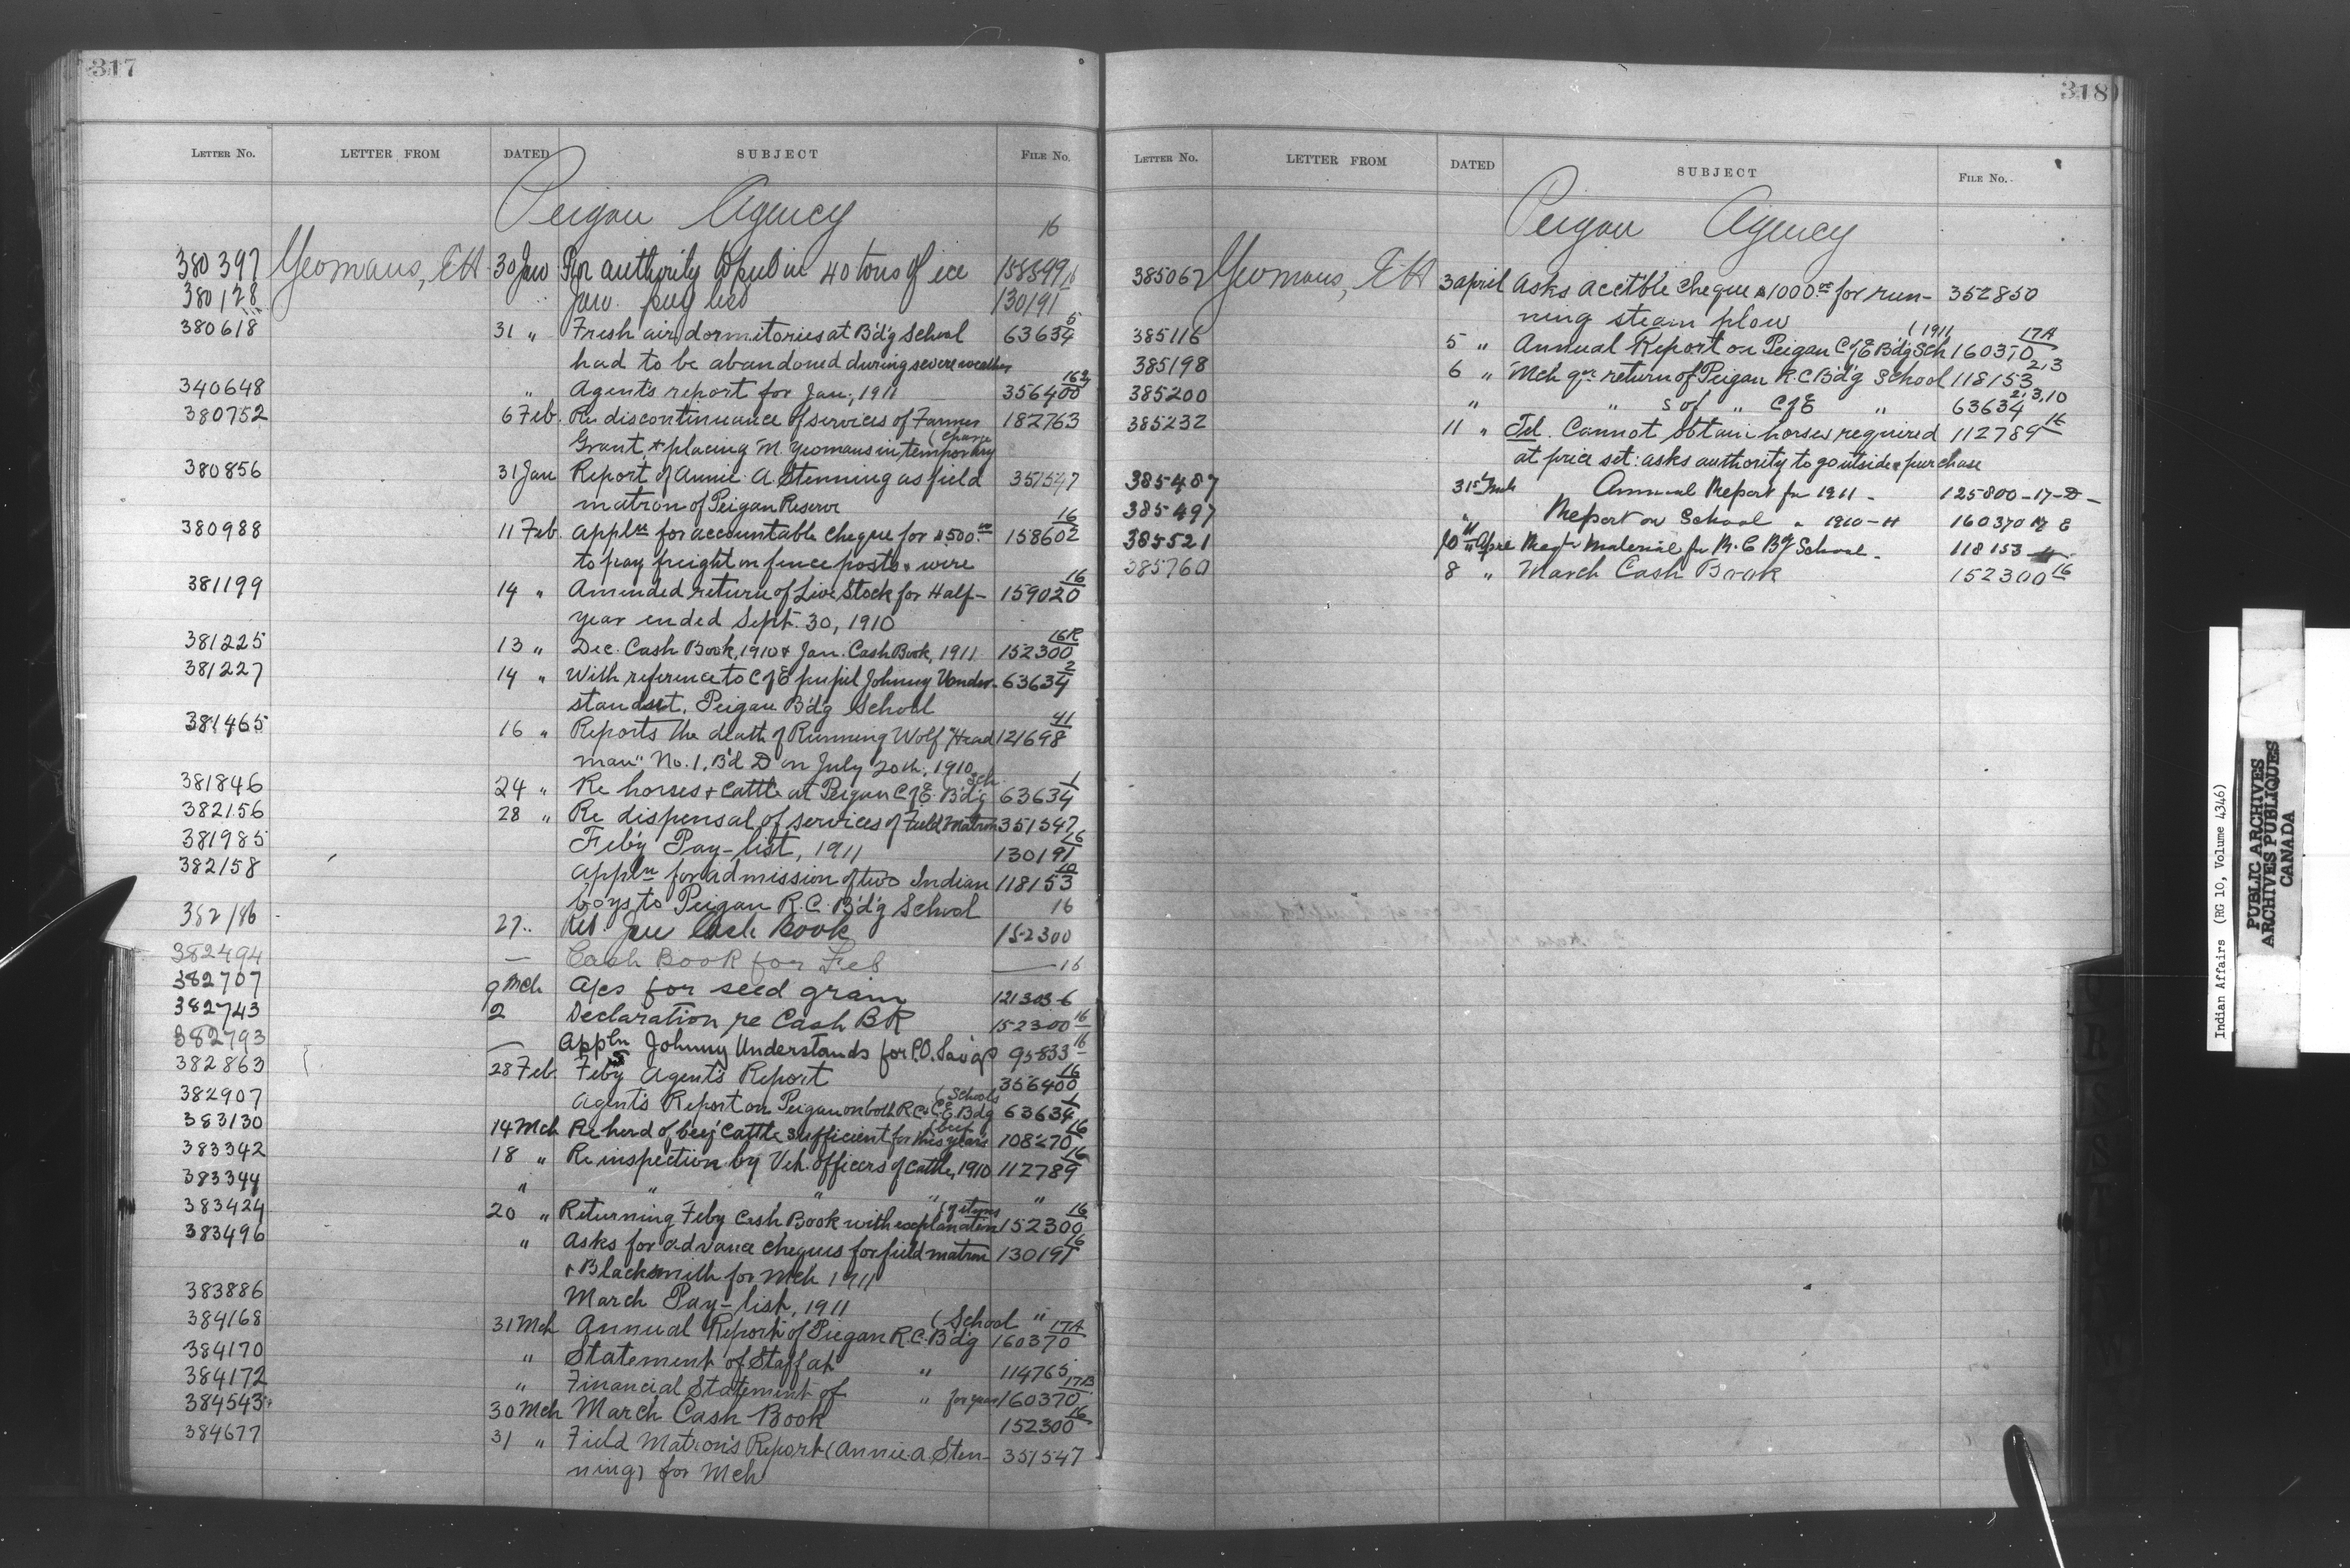 317
LETTER NO. LETTER FROM DATED SUBJECT FILE No.
Peigan Agency
16
380397 Yeomans, EH 30 Jan For authority to put in 40 tons of ice 158599 16
380128 " Jan. pay list 130191
380618 31 " Fresh air dormitories at B'd'g School 63634 5
had to be abandoned during severe weather
340648 " Agent's report for Jan., 1911 356400 162
380752 6 Feb. Re discontinuance of services of Farmer 182763
Grant, + placing M. Yeomans in temporary (charge
380856 31 Jan Report of Annie A. Stenning as field 351547
matron of Peigan Reserve
380988 11 Feb. Appln for accountable cheque for $500.00 158602 16
to pay freight on fence posts & wire
381199 14 " Amended return of Live Stock for Half- 159020 16
year ended Sept. 30, 1910
381225 13 " Dec. Cash Book, 1910 & Jan. Cash Book, 1911 152300 16R
381227 14 " With reference to C of E pupil Johnny Under- 63634 2
stands it. Peigan B'd'g School
381465 16 " Reports the death of Running Wolf "Head 121698 41
man" No. 1, B'd D on July 20th, 1910
381846 24 " Re horses + cattle at Peigan C of E. B'd'g (Sch. 63634 1
382156 28 " Re dispensal of services of Field Matron 351547
381985 Feb'y Pay-list, 1911 130191 16
382158 Appln for admission of two Indian 118153 10
boys to Peigan R.C. B'd'g School 16
382186 27 .. Ret. Jan Cash Book 152300
382494 — Cash Book for Feb — 16
382707 9 Mch A/cs for seed grain 121303-6
382743 2 Declaration re Cash BK 152300 16
382793 — Appln Johnny Understands for P.O. Sav'gs 95833 16
382863 28 Feb. Feby Agent's Report 356400 16
382907 Agent's Report on Peigan on both R.C & C.E. Bdg (Schools 63634 1
383130 14 Mch Re herd of beef cattle sufficient for this year's (beef 108270 16
383342 18 " Re inspection by Vet. officers of cattle, 1910 112789 16
383344 " " " " "
383424 20 " Returning Feby Cash Book with explanation (of items 152300 16
383496 " Asks for advance cheques for field matron 130191 16
& Blacksmith for Mch 1911
383886 March Pay-list, 1911 "
384168 31 Mch Annual Report of Peigan R.C. B'd'g (School 160370 17A
384170 " Statement of Staff at " 114765
384172 " Financial Statement of " for year 160370 17B
384543 30 Mch March Cash Book 152300 16
384677 31 " Field Matron's Report (Annie. A. Sten- 351547
ning) for Mch
318
LETTER NO. LETTER FROM DATED SUBJECT FILE No.
Peigan Agency
385062 Yeomans, EH 3 april Asks acctble cheque $1000.00 for run- 352850
ning steam plow
385116 5 " Annual Report on Peigan C of E B'd'g Sch (1911 160370 17A
385198 6 " Mch qr return of Peigan R.C B'd'g School 118153 2,3
385200 " " s of " C of E " 63634 2,3,10
385232 11 " Tel. Cannot obtain horses required 112789 16
at price set: asks authority to go outside & purchase
385487 31st Mch Annual Report for 1911 - 125800-17-D-
385497 " Report on School " 1910-11 160370 17 E
385521 10th Apre Req. Material for R.C Bg School - 118153-4
385760 8 " March Cash Book 152300 16
Indian Affairs (RG 10, Volume 4346)
PUBLIC ARCHIVES
ARCHIVES PUBLIQUES
CANADA